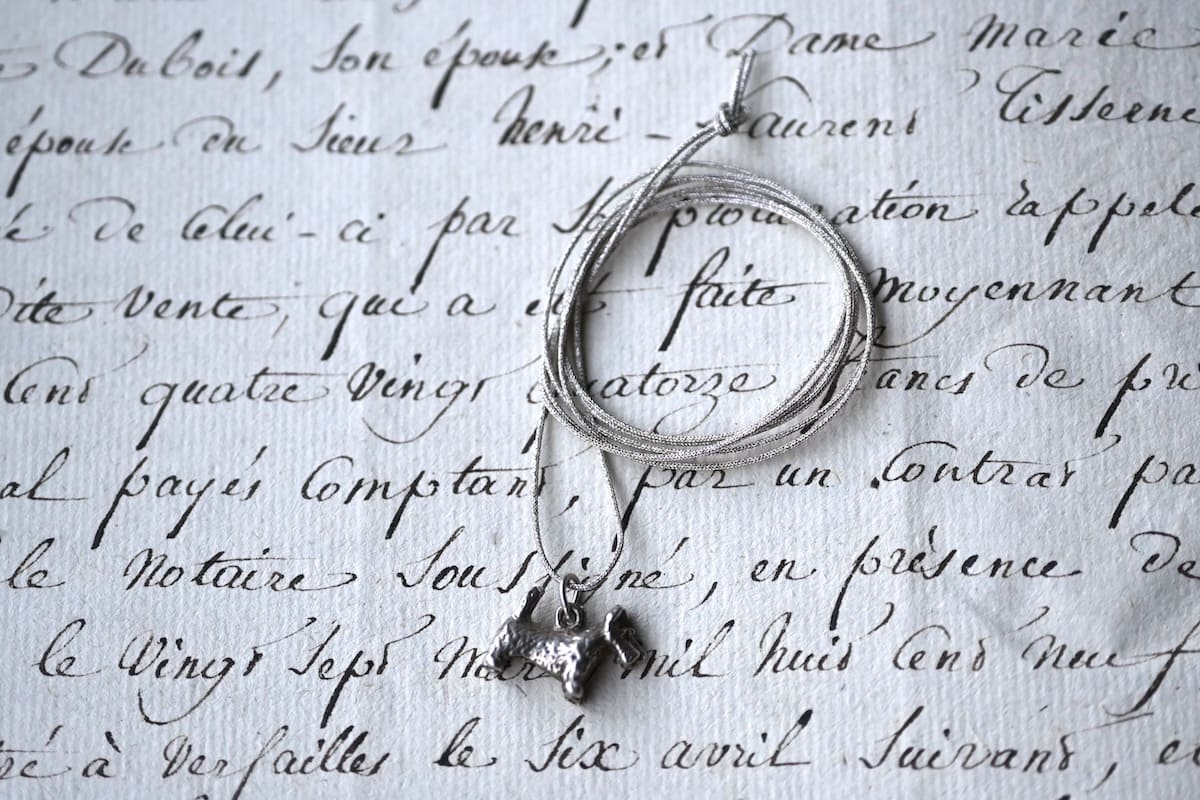 Dubois, son épouse; et Dame Marie
épouse du Sieur henri - Laurent Tisserne
de Celui-ci par Sa procuration rappel
Dite Vente, qui a été faite moyennant
Cent quatre Vingt quatorze francs de pri
al payés Comptant, par un Contrat pa
le Notaire Soussigné, en présence de
le Vingt Sept Mars mil huit Cent Neuf
tré à Versailles le Six avril Suivant, e